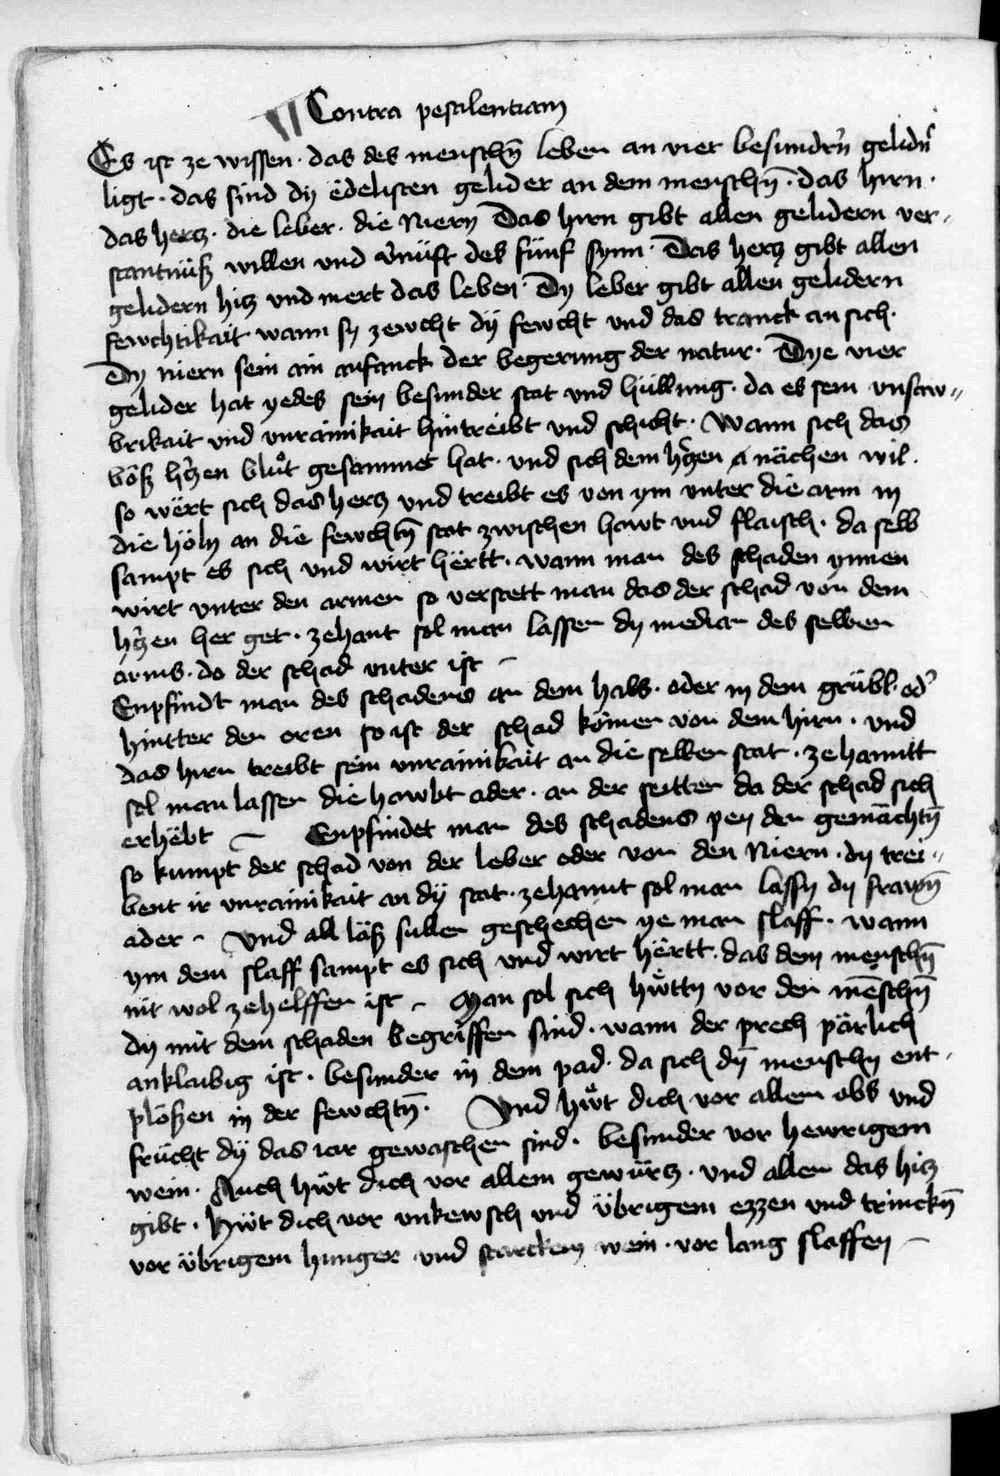 Contra pestilentiam
Es ist ze wissen · das des menschn̄ leben an vier besundrn̄ gelidn̄
ligt · das sind dÿ edelisten gelider an dem menschn̄ · das hirn ·
das hercz · die leber · die Niern Das hirn gibt allen gelidern ver„
stantnüß willen vnd v̾nüft des fünf synn · Das hercz gibt allen
gelidern hicz vnd mert das leben · Dy leber gibt allen gelidern
fewchtikait wann sy zewcht dÿ fewcht vnd das tranck an sich ·
Dy niern sein ain anfanck der begerung der natur · Dye vier
gelider hat yedes sein besunder stat vnd hüllung · da es sein vnsaw„
brikait vnd vnrainikait hintreibt vnd schicht · Wann sich das
böß hc̾zen blůt gesammet hat · vnd sich dem hc̾zen nächen wil ·
so wert sich das hercz vnd treibt es von ym vnter die arm in
die höln an die fewchtn̄ stat zwischen hawt vnd flaisch · da selb
sampt es sich vnd wirt hërtt · wann man des schaden ynnen
wirt vnter den armen so verstett man das der schad von dem
hc̾zen her get · zehant sol man lassen dy median des selben
arms · do der schad vnter ist ~
Enpfindt man des schadens an dem hals · oder in dem grübl · od̾
hintter den oren so ist der schad kömen von dem hirn · vnd
das hirn treibt sein vnrainikait an die selben stat · zehanntt
sol man lassen die hawbt ader · an der seitten da der schad sich
erhëbt ~ Enpfindet man des schadens pey den gemächtn̄
so kumpt der schad von der leber oder von den Niern · dy trei„
bent ir vnrainikait an dÿ stat · zehannt sol man lassn dy frawn̄
ader ~ Vnd all läß sullen geschechen ye man slaff · wann
ym dem slaff sampt es sich vnd wirt hërtt · das dem menschn̄
nit wol zehelffen ist ~ Man sol sich hu̇ttn vor den mēschn̄
dy mit dem schaden begriffen sind · wann der prech pärlich
anklaibig ist · besunder in dem pad · da sich dÿ menschn ent„
plößen in der fewchtn̄ · Vnd hüt dich vor allem obs vnd
frücht dÿ das iar gewachsen sind · besunder vor hewrigem
wein · Auch hüt dich vor allem gewürcz · vnd allen das hicz
gibt · Hüt dich vor vnkewsch vnd übrigem ezzen vnd trinckn̄
vor übrigem hunger vnd starckem wein · vor lang slaffen ~